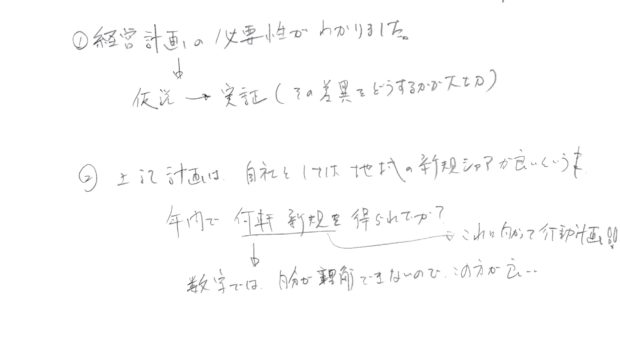 ①経営計画の必要性がわかりました。
↓
仮説 → 実証 (その差異をどうするかが大切)
② 上記計画は、自社としては 地域の新規シェアが良いという事、
年内で 何軒 新規を 得られてか?
これに向かって行動計画!!
↓
数字では、自分が理解できないので、この方が良い..